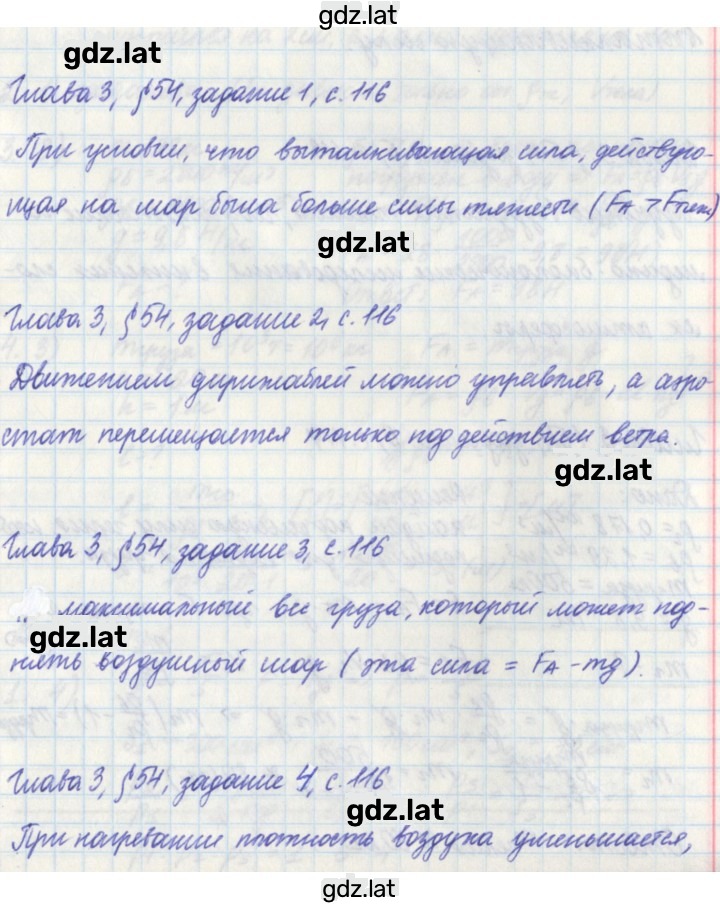 gdz.lat
gdz.lat
Глава 3, § 54, задание 1, с. 116
При условии, что выталкивающая сила, действую-
щая на шар была больше силы тяжести (FA > Fтяж)
gdz.lat
Глава 3, § 54, задание 2, с. 116
Движением дирижаблей можно управлять, а аэро-
стат перемещается только под действием ветра.
gdz.lat
Глава 3, § 54, задание 3, с. 116
максимальный вес груза, который может под-
gdz.lat
нять воздушный шар (эта сила = FA - mg).
Глава 3, § 54, задание 4, с. 116
gdz.lat
При нагревании плотность воздуха уменьшается,
gdz.lat